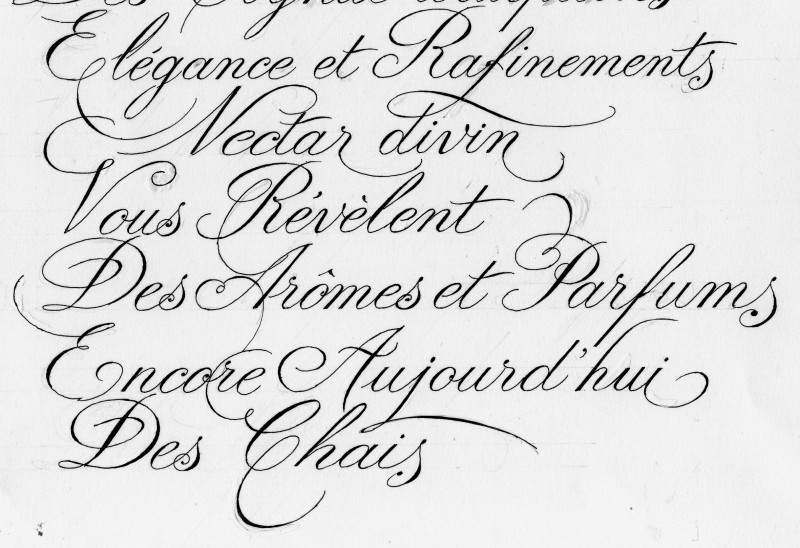 Des Cognac
Elégance et Rafinements
Nectar divin
Vous Révèlent
Des Arômes et Parfums
Encore Aujourd'hui
Des Chais